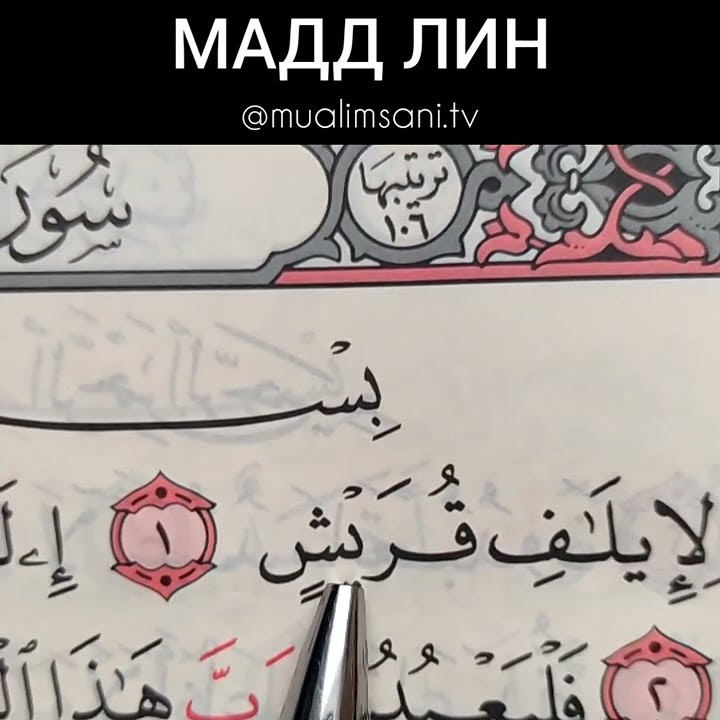 МАДД ЛИН
@mualimsani.tv
ترتيبها
١٠٦
بِسْـ
لِإِيلَـٰفِ قُرَيْشٍ ١
٢ فَلْيَعْبُدُ رَبَّ هَـٰذَا